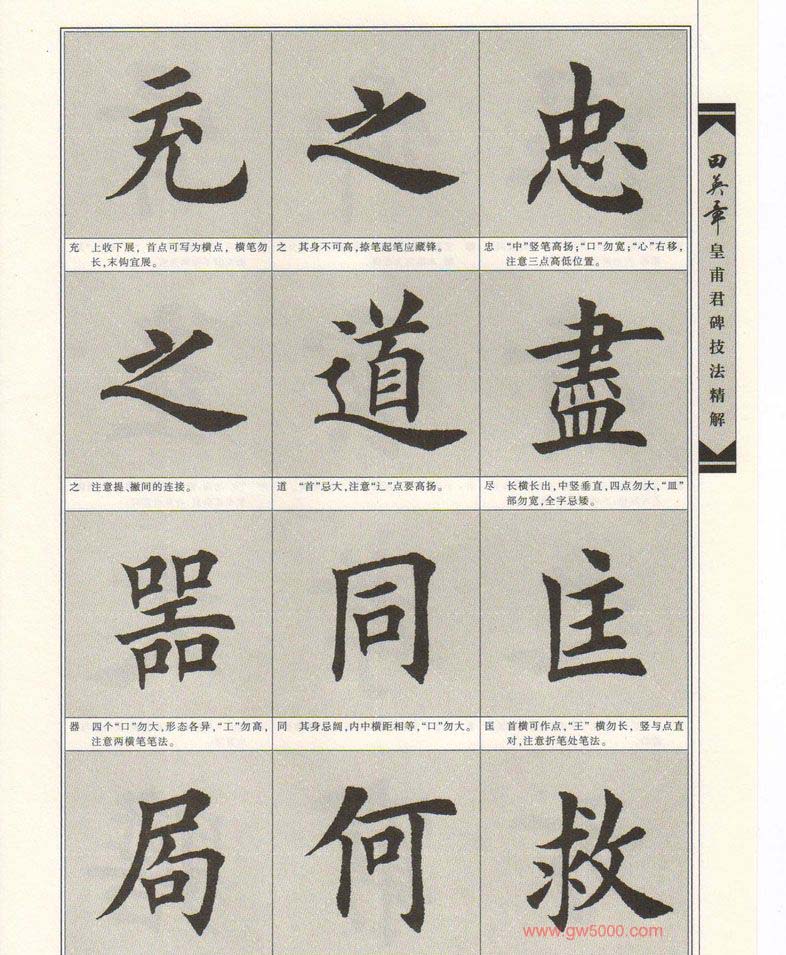 田英章
皇甫君碑技法精解
忠
忠 “中”竖笔高扬;“口”勿宽;“心”右移,
注意三点高低位置。
盡
尽 长横长出,中竖垂直,四点勿大,“皿”
部勿宽,全字忌矮。
匡
匡 首横可作点,“王”横勿长,竖与点直
对,注意折笔处笔法。
救
之
之 其身不可高,捺笔起笔应藏锋。
道
道 “首”忌大,注意“辶”点要高扬。
同
同 其身忌阔,内中横距相等,“口”勿大。
何
充
充 上收下展,首点可写为横点,横笔勿
长,末钩宜展。
之
之 注意提、撇间的连接。
器
器 四个“口”勿大,形态各异,“工”勿高,
注意两横笔笔法。
局
www.gw5000.com